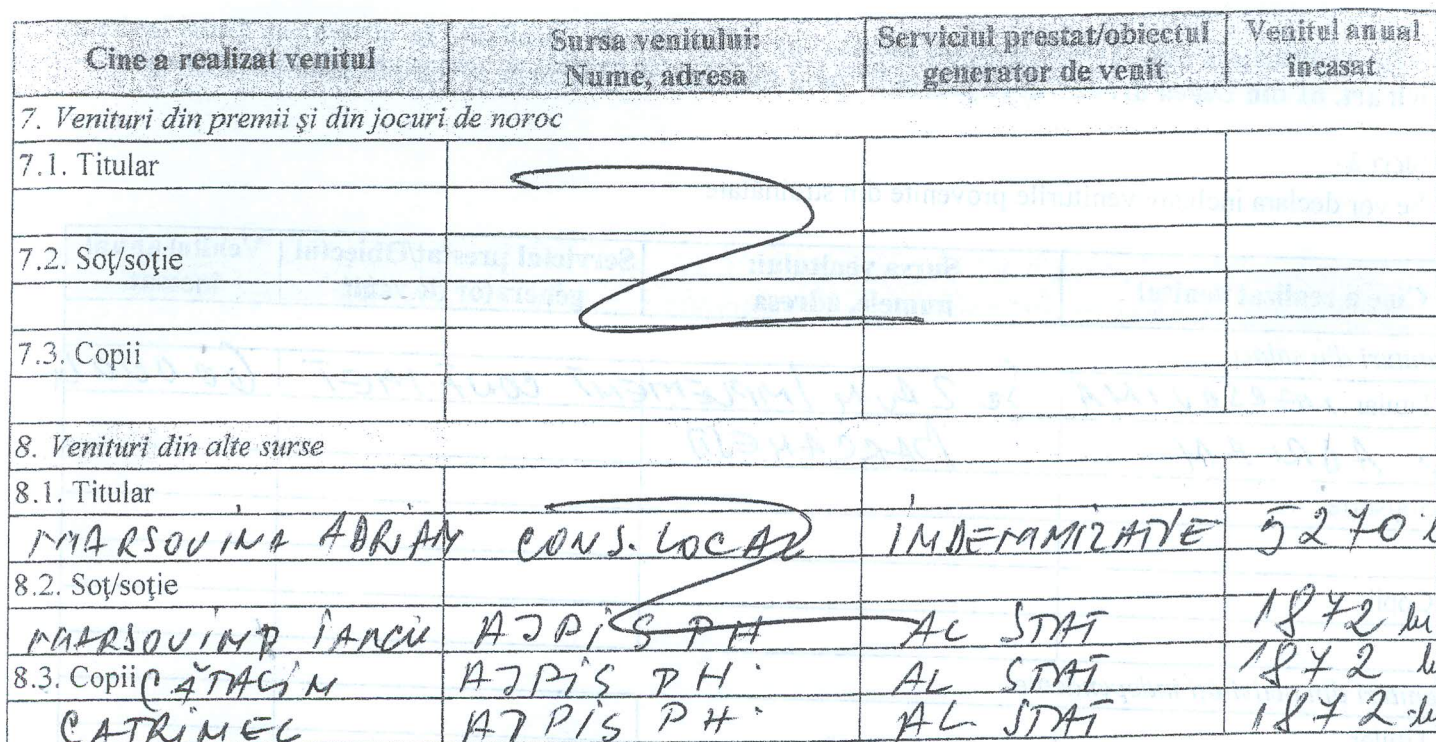 Cine a realizat venitul | Sursa venitului: Nume, adresa | Serviciul prestat/obiectul generator de venit | Venitul anual încasat
7. Venituri din premii şi din jocuri de noroc
7.1. Titular
7.2. Soţ/soţie
7.3. Copii
8. Venituri din alte surse
8.1. Titular
MARSOVINA ADRIAN CONS. LOCAL INDEMNIZATIE 5270
8.2. Soţ/soţie
MARSOVINA IANCU AJPIS PH AL STAT 1872 lei
8.3. Copii CĂTĂLIN AJPIS PH. AL STAT 1872
CATRINEL AJPIS PH. AL STAT 1872 lei